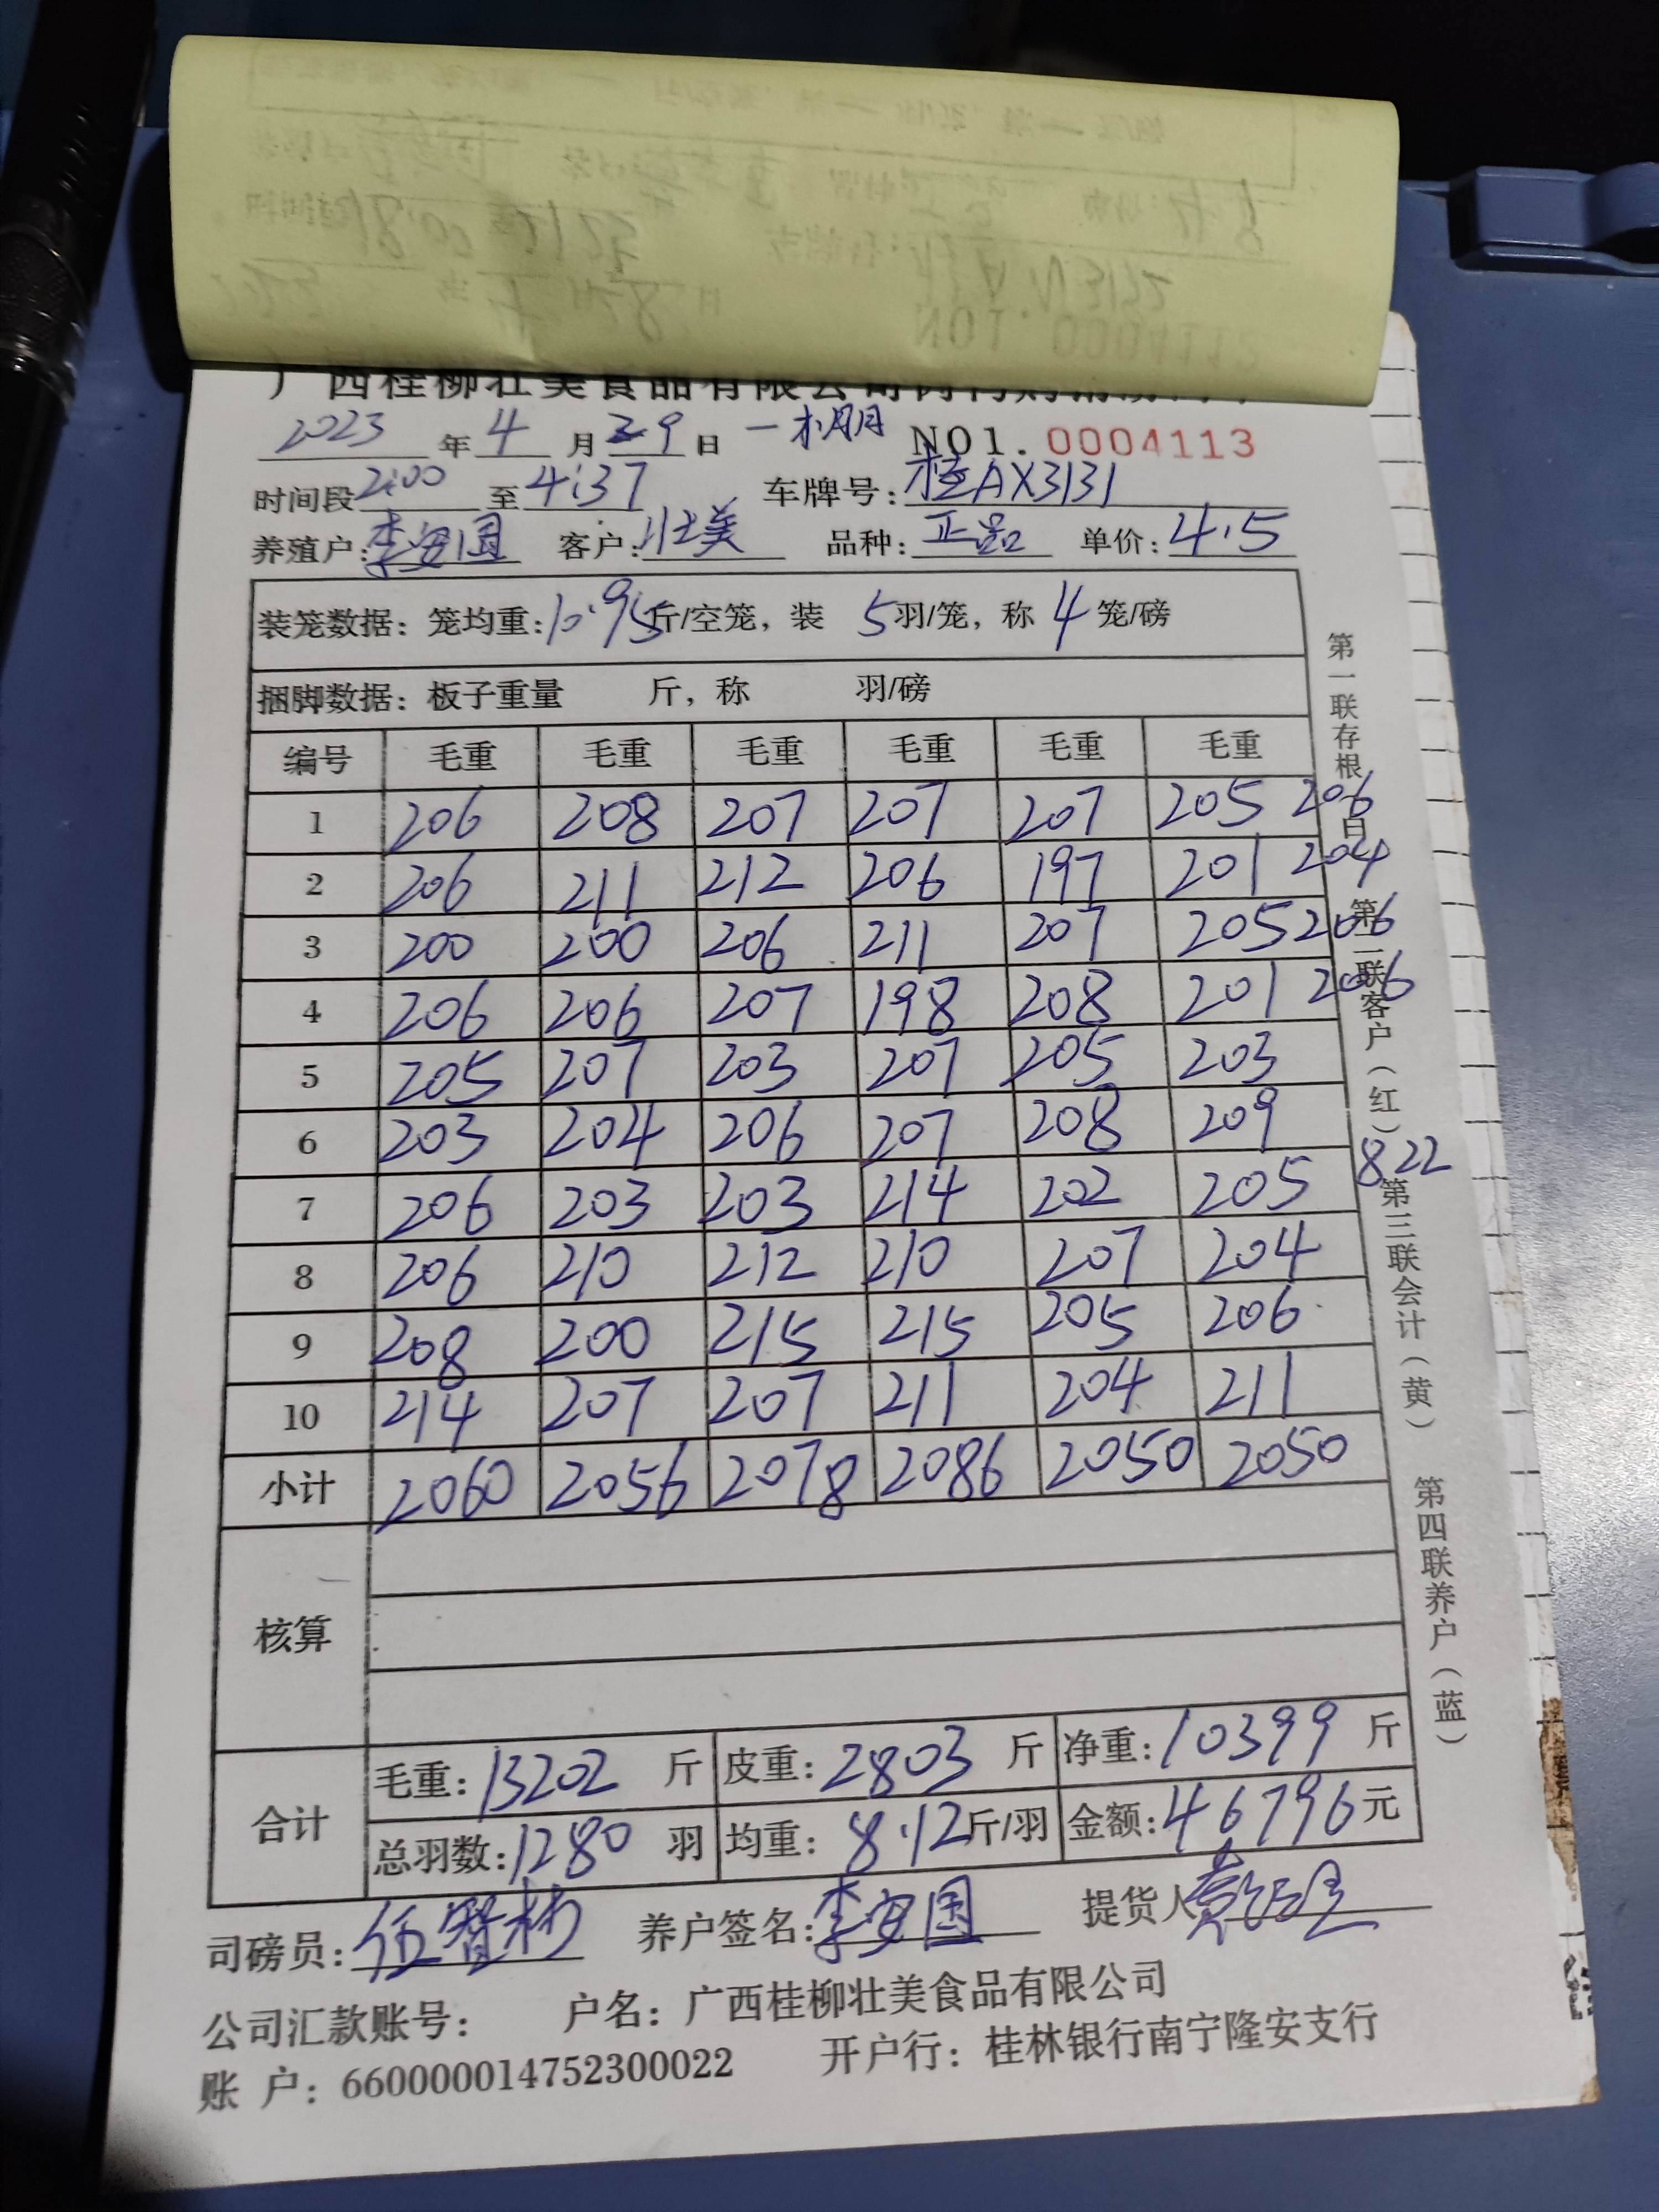 广西桂柳壮美食品有限公司
2023 年 4 月 29 日 一 NO1. 0004113
时间段 2:00 至 4:37 车牌号: 桂AX3131
养殖户: 李安国 客户: 壮美 品种: 正品 单价: 4.5
装笼数据: 笼均重: 10.95 斤/空笼, 装 5 羽/笼, 称 4 笼/磅
捆脚数据: 板子重量 斤, 称 羽/磅
编号 毛重 毛重 毛重 毛重 毛重 毛重
1 206 208 207 207 207 205 206
2 206 211 212 206 197 201 204
3 200 200 206 211 207 205 206
4 206 206 207 198 208 201 206
5 205 207 203 207 205 203
6 203 204 206 207 208 209
7 206 203 203 214 202 205 822
8 206 210 212 210 207 204
9 208 200 215 215 205 206
10 214 207 207 211 204 211
小计 2060 2056 2078 2086 2050 2050
核算
合计 毛重: 13202 斤 皮重: 2803 斤 净重: 10399 斤
总羽数: 1280 羽 均重: 8.12 斤/羽 金额: 46796 元
司磅员: 伍智林 养户签名: 李安国 提货人
公司汇款账号: 户名: 广西桂柳壮美食品有限公司
账 户: 660000014752300022 开户行: 桂林银行南宁隆安支行
第一联存根 白 第二联客户(红) 第三联会计(黄) 第四联养户(蓝)